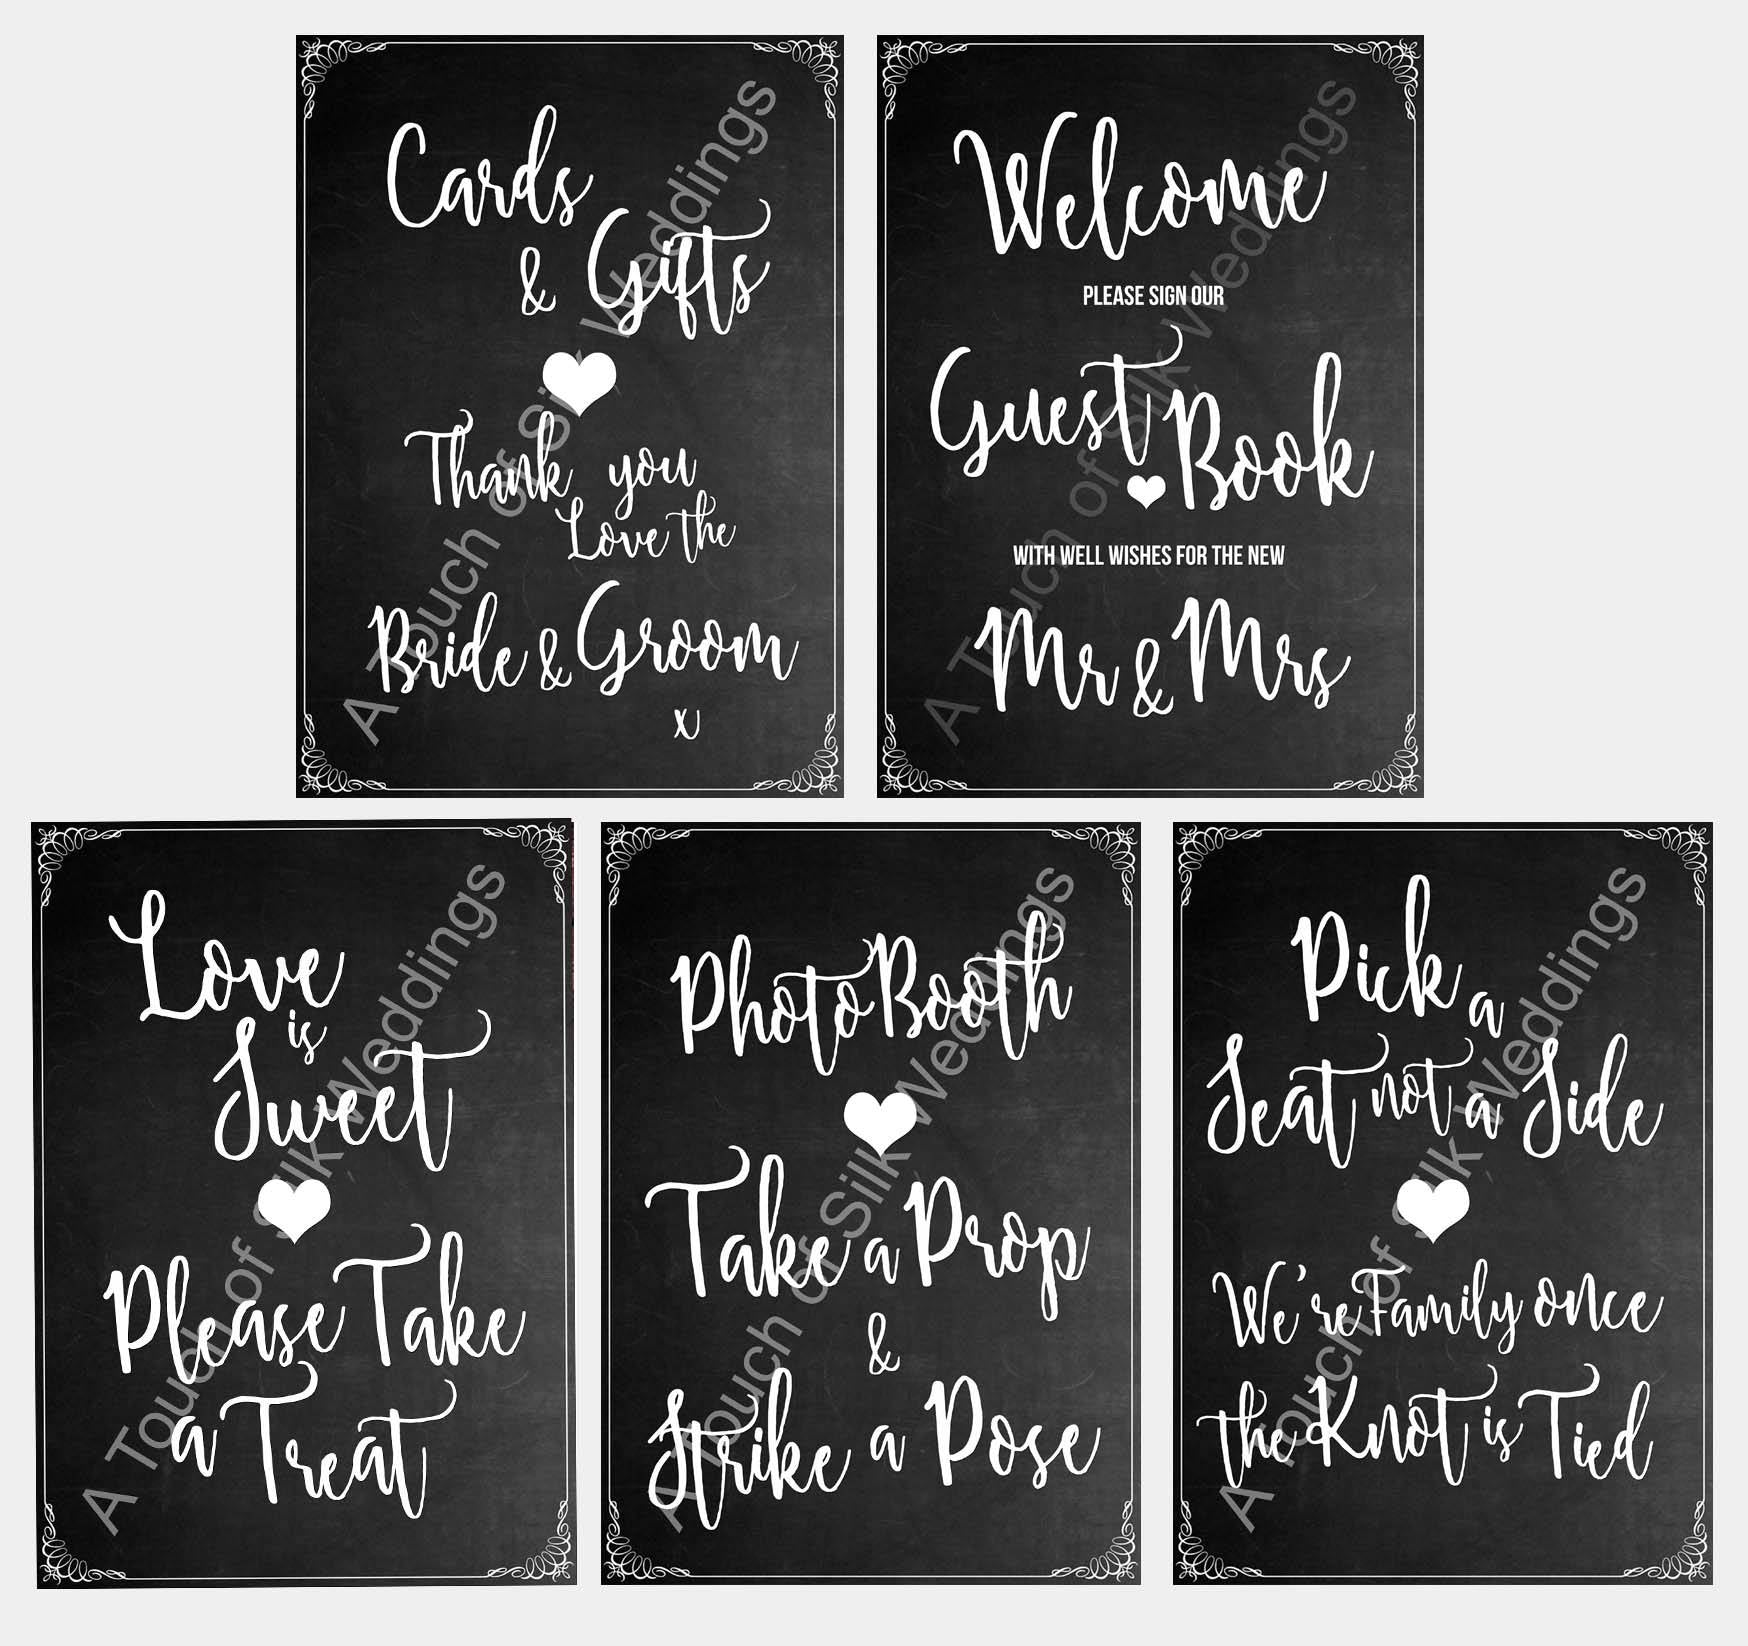 Cards
& Gifts
Thank you
Love the
Bride & Groom
x
A Touch of Silk Weddings
Welcome
PLEASE SIGN OUR
Guest Book
WITH WELL WISHES FOR THE NEW
Mr & Mrs
A Touch of Silk Weddings
Love
is
Sweet
Please Take
a Treat
A Touch of Silk Weddings
Photo Booth
Take a Prop
&
Strike a Pose
A Touch of Silk Weddings
Pick a
Seat not a Side
We're Family once
the Knot is Tied
A Touch of Silk Weddings